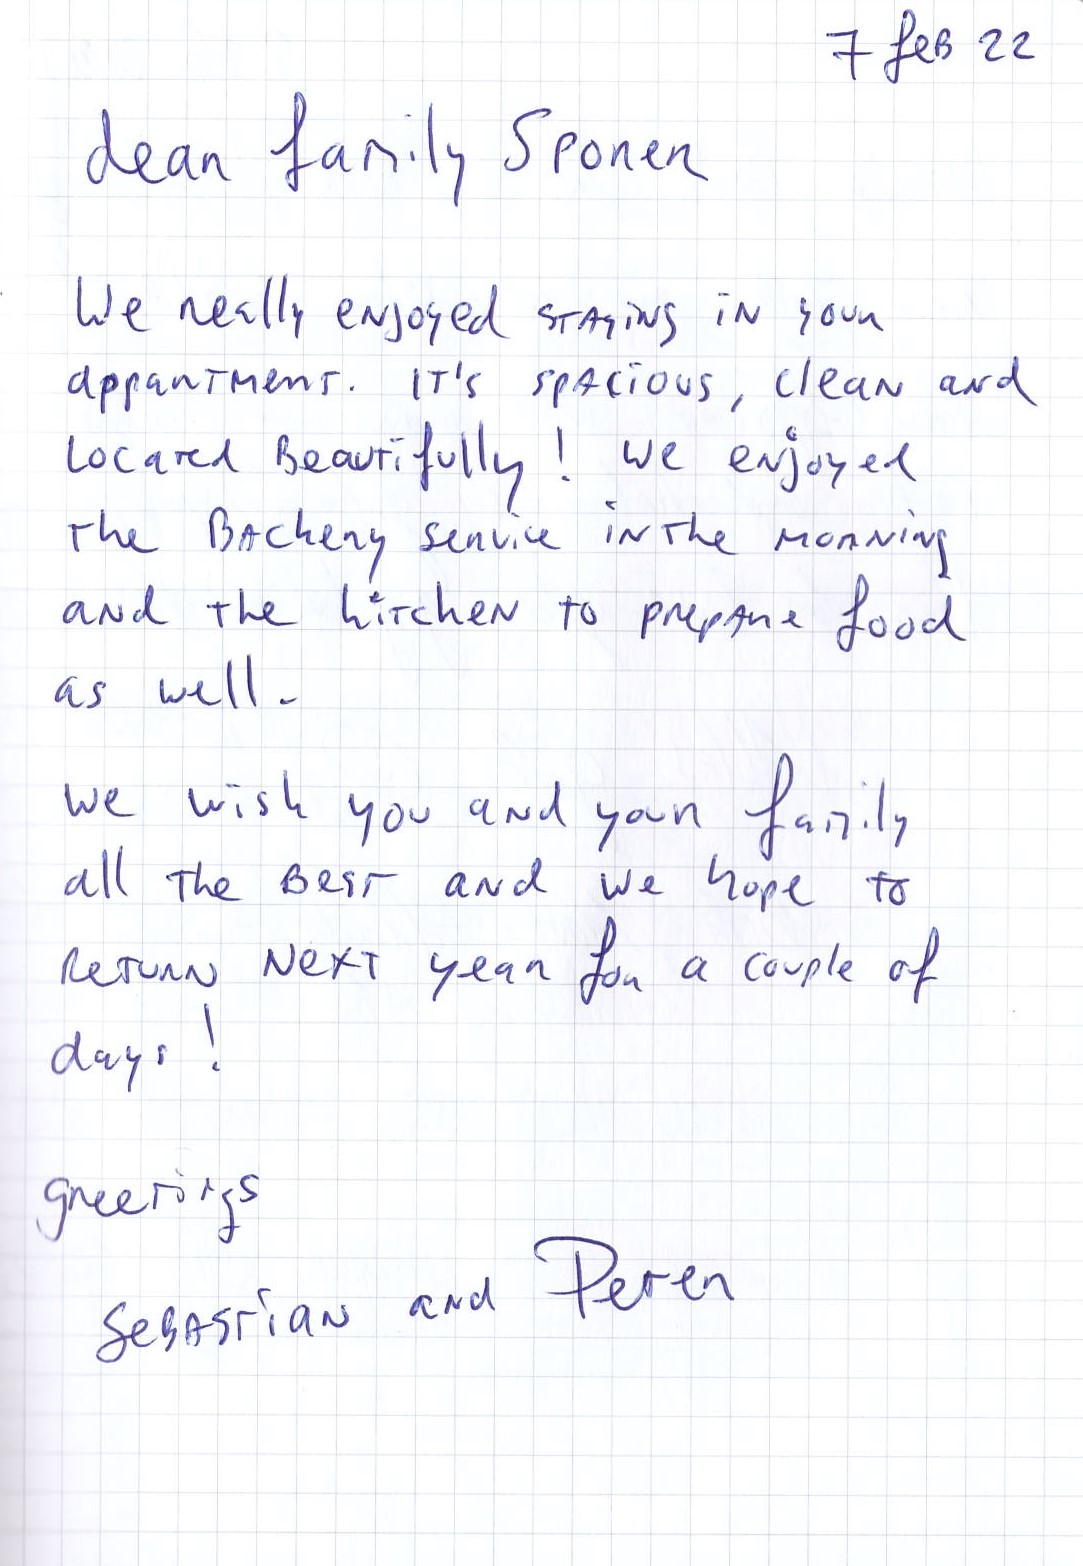 7 feb 22
dear family Sponer
We really enjoyed staying in your
appartment. It's spacious, clean and
located Beautifully! We enjoyed
the Backery service in the morning
and the kitchen to prepare food
as well.
We wish you and your family
all the Best and we hope to
Return Next year for a couple of
days!
greetings
Sebastian and Peter